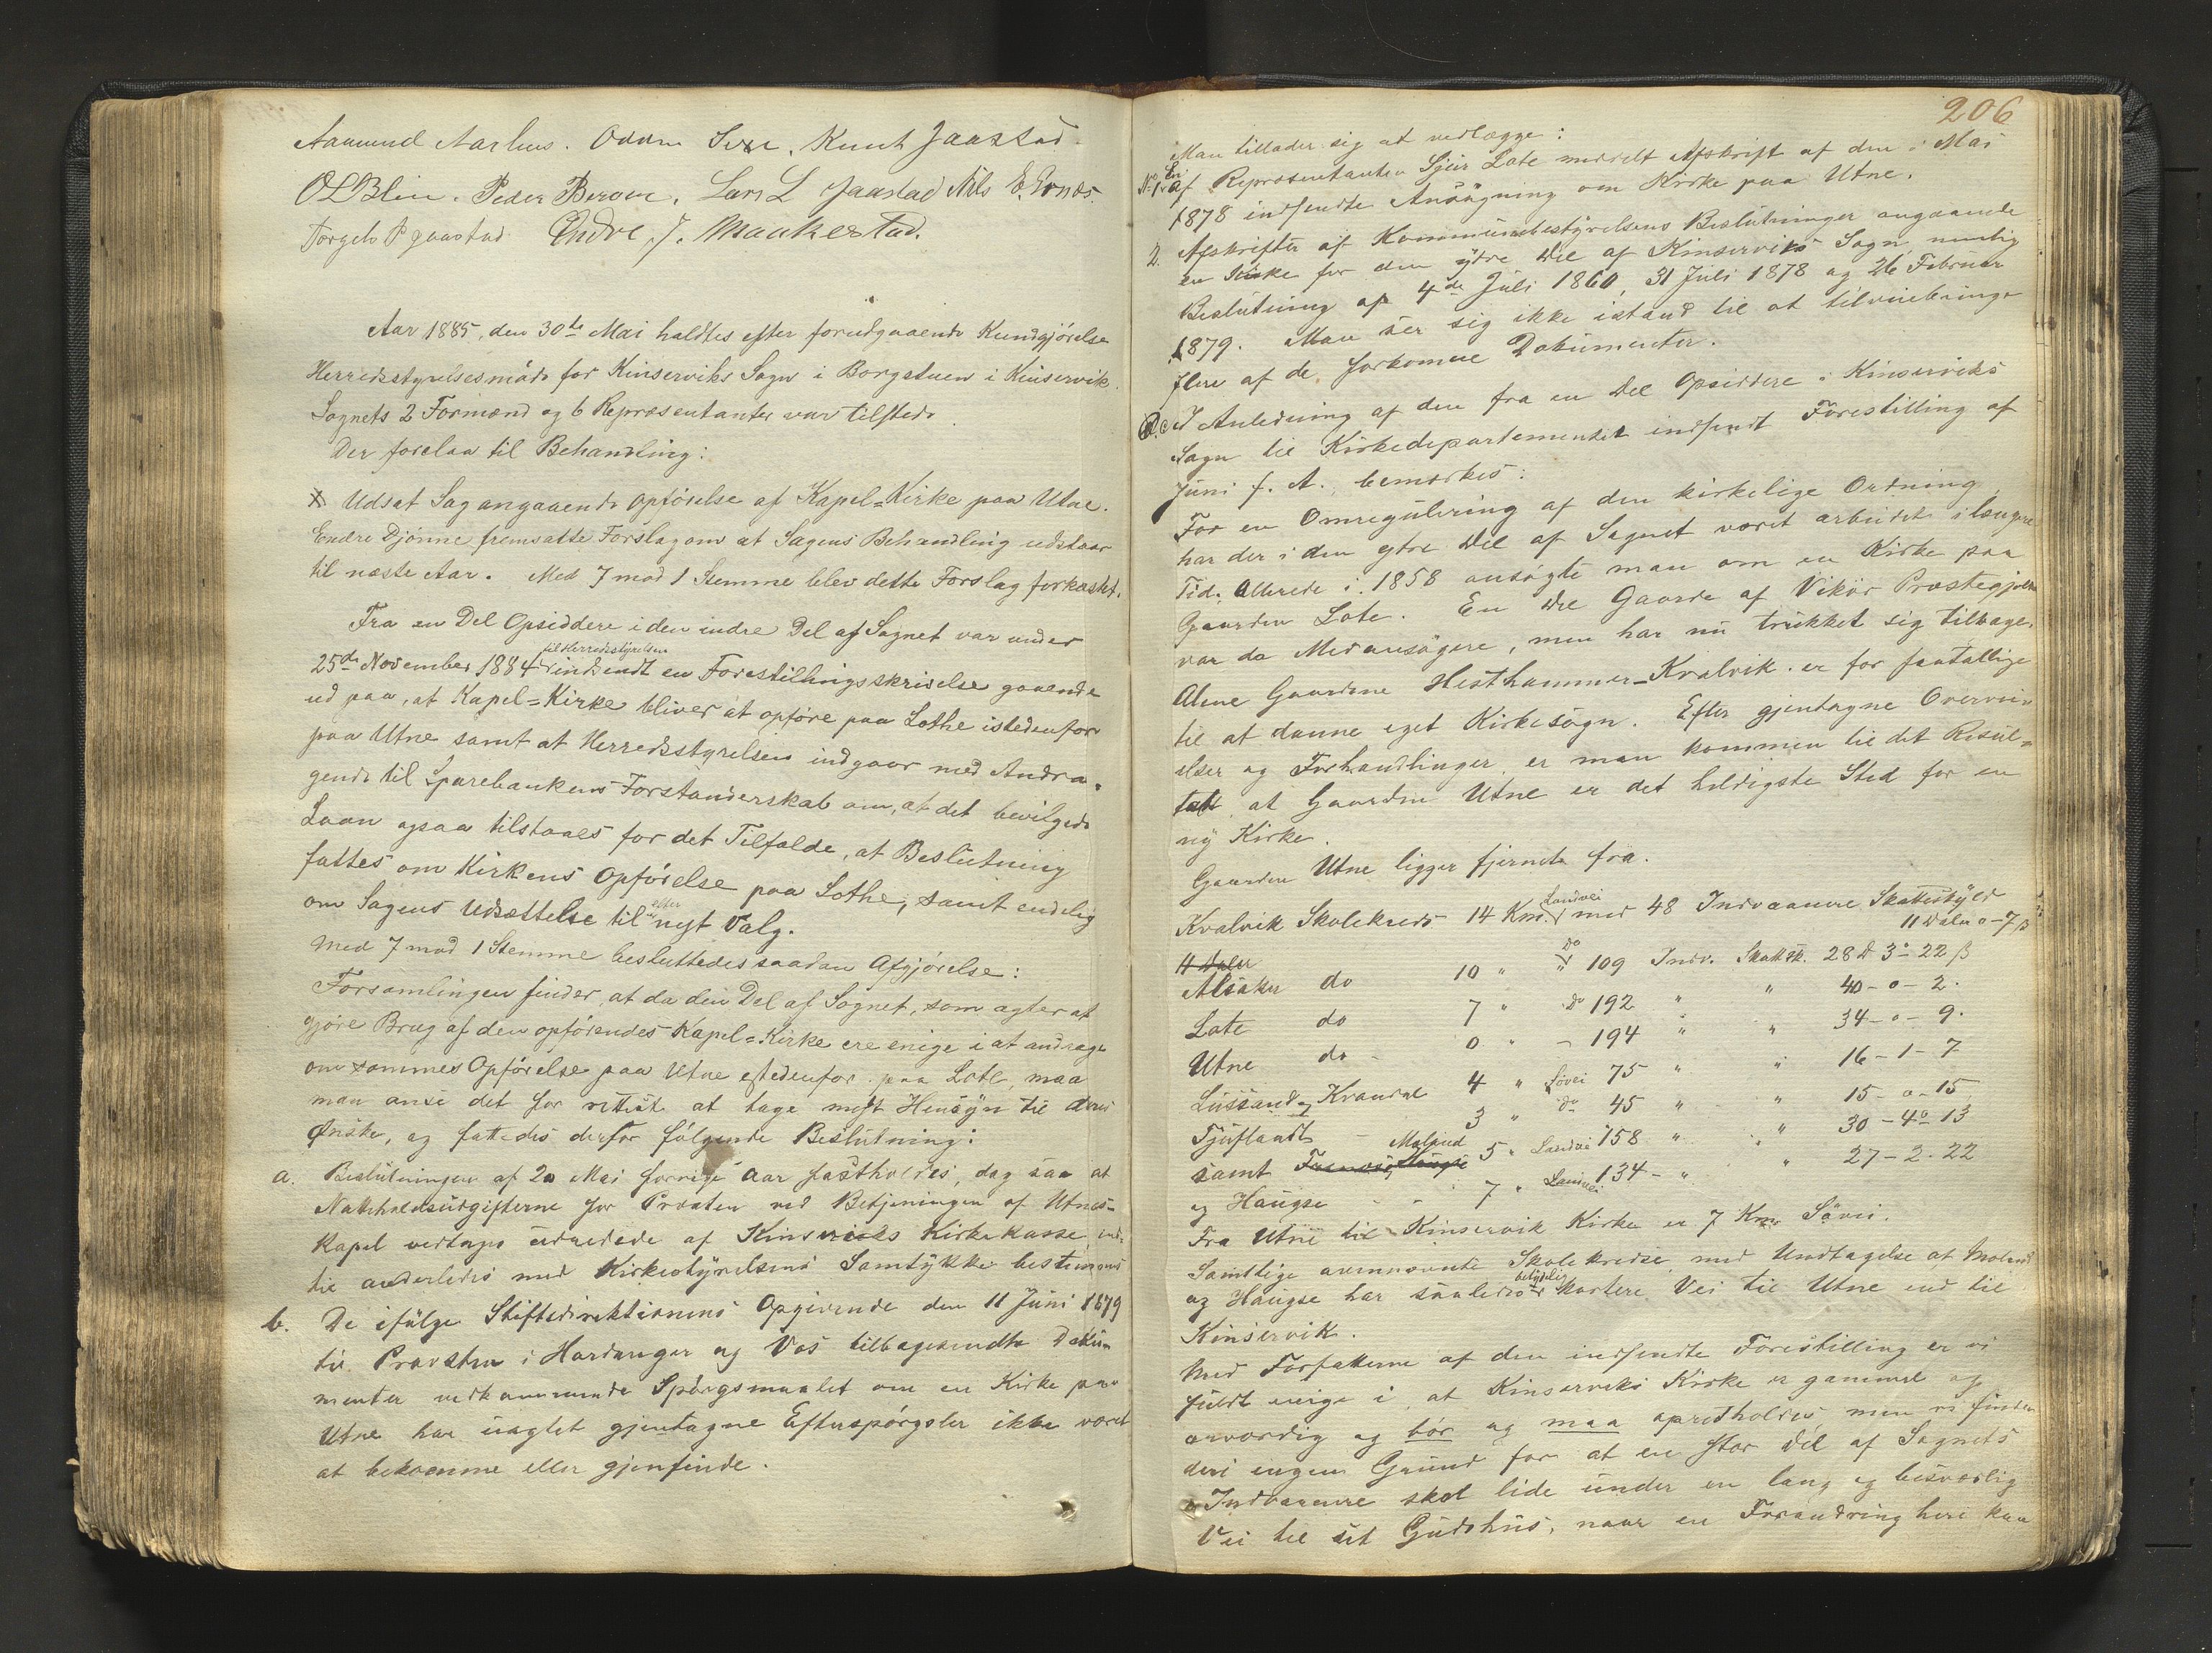 Aamund Aarhus. Oddm Sexe. Knut Jaastad.
O L Blie. Peder Berven. Lars L Jaastad Nils E. Ernæs.
Torgels P Jaastad Endre J. Maakestad.
Aar 1885, den 30te Mai holdtes efter forudgaaende Kundgjørelse
Herredsstyrelsesmøde for Kinserviks Sogn i Borgstuen i Kinservik.
Sognets 2 Formænd og 6 Repræsentanter var tilstede.
Der forelaa til Behandling:
X Udsat Sag angaaende Opførelse af Kapel=Kirke paa Utne.
Endre Djønne fremsatte Forslag om at Sagens Behandling udstaar
til næste Aar. Med 7 mod 1 Stemme blev dette Forslag forkastet.
Fra en Del Opsiddere i den indre Del af Sognet var under
25de November 1884 til Herredsstyrelsen indsendt en Forestillingsskrivelse gaaende
ud paa, at Kapel=Kirke bliver at opføre paa Lothe istedenfor
paa Utne samt at Herredsstyrelsen indgaar med Andra-
gende til Sparebankens Forstanderskab om, at det bevilgede
Laan ogsaa tilstaaes for det Tilfælde, at Beslutning
fattes om Kirkens Opførelse paa Lothe, samt endelig
om Sagens Udsættelse til efter nyt Valg.
Med 7 mod 1 Stemme besluttedes saadan Afgjørelse:
Forsamlingen finder, at da den Del af Sognet, som agter at
gjøre Brug af den opførendes Kapel=Kirke ere enige i at andrage
om sammes Opførelse paa Utne istedenfor paa Lote, maa
man anse det for rettest at tage mest Hensyn til deres
Ønske, og fattedes derfor følgende Beslutning:
a. Beslutningen af 20 Mai forrige Aar fastholdes, dog saa at
Natteholdsudgifterne for Præsten ved Betjeningen af Utnes-
Kapel vedtages udredede af Kinserviks Kirkekasse, ind-
til anderledes med Kirkestyrelsens Samtykke bestemmes
b. De ifølge Stiftsdirektionens Opgivende den 11 Juni 1879
til Provsten i Hardanger og Vos tilbagesendte Doku-
menter vedkommende Spørgsmaalet om en Kirke paa
Utne har uagtet gjentagne Efterspørgsler ikke været
at bekomme eller gjenfinde.
206
Man tillader sig at vedlægge:
No 1. En af Repræsentanten Sjur Lote meddelt Afskrift af den i Mai
1878 indsendte Ansøgning om Kirke paa Utne.
2. Afskrifter af Kommunebestyrelsens Beslutninger angaaende
en Kirke for den ydre Del af Kinserviks Sogn, nemlig
Beslutning af 4de Juli 1860, 31 Juli 1878 og 26 Februar
1879. Man ser sig ikke istand til at tilveiebringe
flere af de forkomne Dokumenter.
c. I Anledning af den fra en Del Opsiddere i Kinserviks
Sogn til Kirkedepartementet indsendt Forestilling af
Juni f. A., bemærkes:
For en Omregulering af den kirkelige Ordning
har der i den ytre Del af Sognet været arbeidet i længere
Tid. Allerede i 1858 ansøgte man om en Kirke paa
Gaarden Lote. En Del Gaarde af Vikør Præstegjeld
var da Medansøgere, men har nu trukket sig tilbage.
Alene Gaardene Hesthammer-Kvalvik er for faatallige
til at danne eget Kirkesogn. Efter gjentagne Overvei-
elser og Forhandlinger er man kommen til det Resul-
tat at Gaarden Utne er det heldigste Sted for en
ny Kirke.
Gaarden Utne ligger fjernet fra.
Kvalvik Skolekreds 14 Km. Landvei med 48 Indvaanere Skatteskyld
11 Daler 0-7 ß
11 Daler
Alsaker do 10 " do 109 Indv. Skattsk. 28 D 3-22 ß
Lote do 7 " do 192 " " 40-0-2.
Utne do - 0 " - 194 " " 34-0-9.
Lussand og Kvandal 4 " Søvei 75 " " 16-1-7
Tjuflaadt - 3 " do 45 " " 15-0-15
samt Molund 5 " Landvei 158 " " 30-4-13
og Haugse - - 7 " Landvei 134 - " " 27-2-22
Fra Utne til Kinservik Kirke er 7 Km Søvei.
Samtlige ovennævnte Skolekredse, med Undtagelse af Moland
og Haugse har saaledes betydelig kortere Vei til Utne end til
Kinservik.
Med Forfatterne af den indsendte Forestilling er vi
fuldt enige i, at Kinserviks Kirke er gammel og
ærværdig og bør og maa opretholdes, men vi finder
deri ingen Grund for at en stor Del af Sognets
Indvaanere skal lide under en lang og besværlig
Vei til sit Gudshus, naar en Forandring heri kan